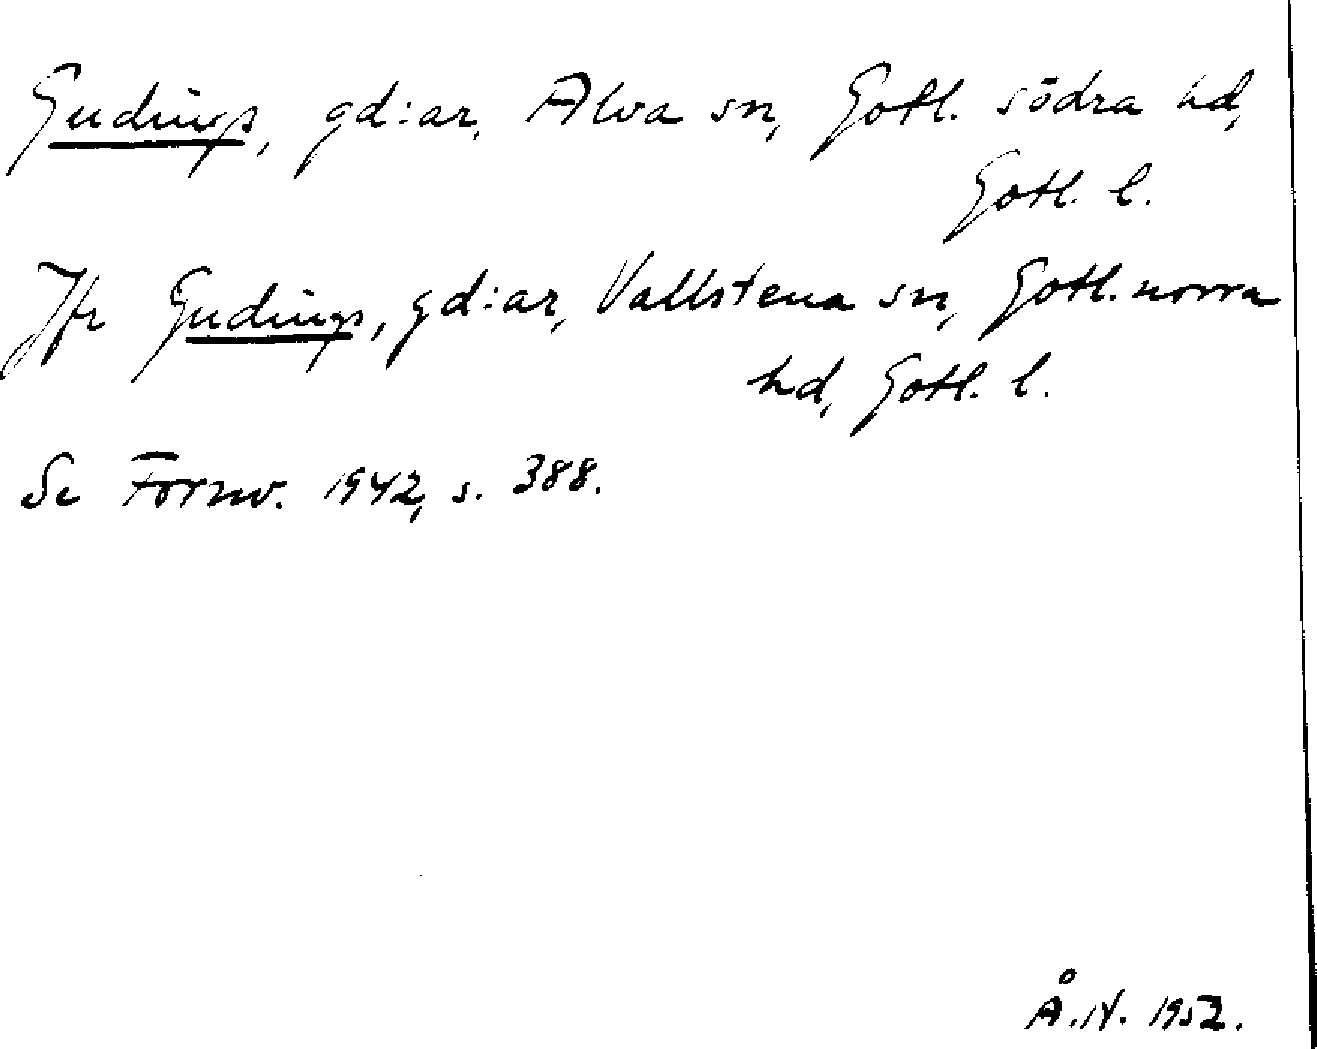 Gudings, gd:ar, Alva sn, Gotl. södra hd,
Gotl. l.
Jfr Gudings, gd:ar, Vallstena sn, Gotl. norra
hd, Gotl. l.
Se Fornv. 1942, s. 388.
Å.N. 1952.